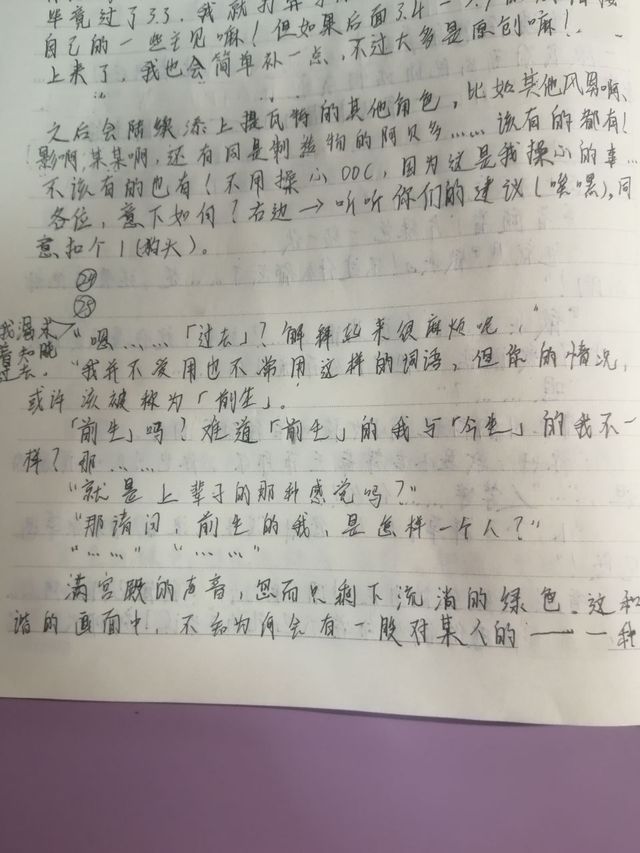 毕竟过了3.3，我就打算
自己的一些主见嘛！但如果后面3.4一
上来了，我也会简单补一点，不过大多是原创嘛！
之后会陆续添上提瓦特的其他角色，比如其他风男啊、
影啊，某某啊，还有同是刺激物的阿贝多……该有的都有！
不该有的也有！不用操心OOC，因为这是我操心的事…
各位，意下如何？右边→听听你们的建议（嘿嘿），同
意扣个1（狗头）。
㉔
㉕
我渴求
着知晓
过去。
“嗯……「过去」？解释起来很麻烦呢：”
“我并不爱用也不常用这样的词语，但你的情况，
或许该被称为「前生」。
「前生」吗？难道「前生」的我与「今生」的我不一
样？那……
“就是上辈子的那种感觉吗？”
“那请问，前生的我，是怎样一个人？”
“……”“……”
满宫殿的声音，忽而只剩下流淌的绿色。这和
谐的画面中，不知为何会有一股对某人的——一种